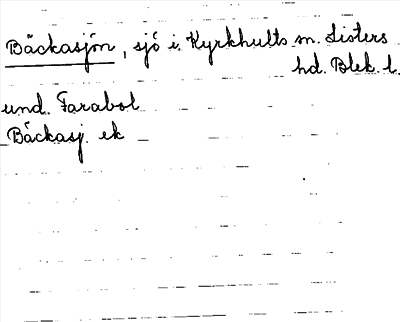 Bäckasjön, sjö i Kyrkhults sn. Listers
hd. Blek. l.
und. Farabol
Bäckasj. ek